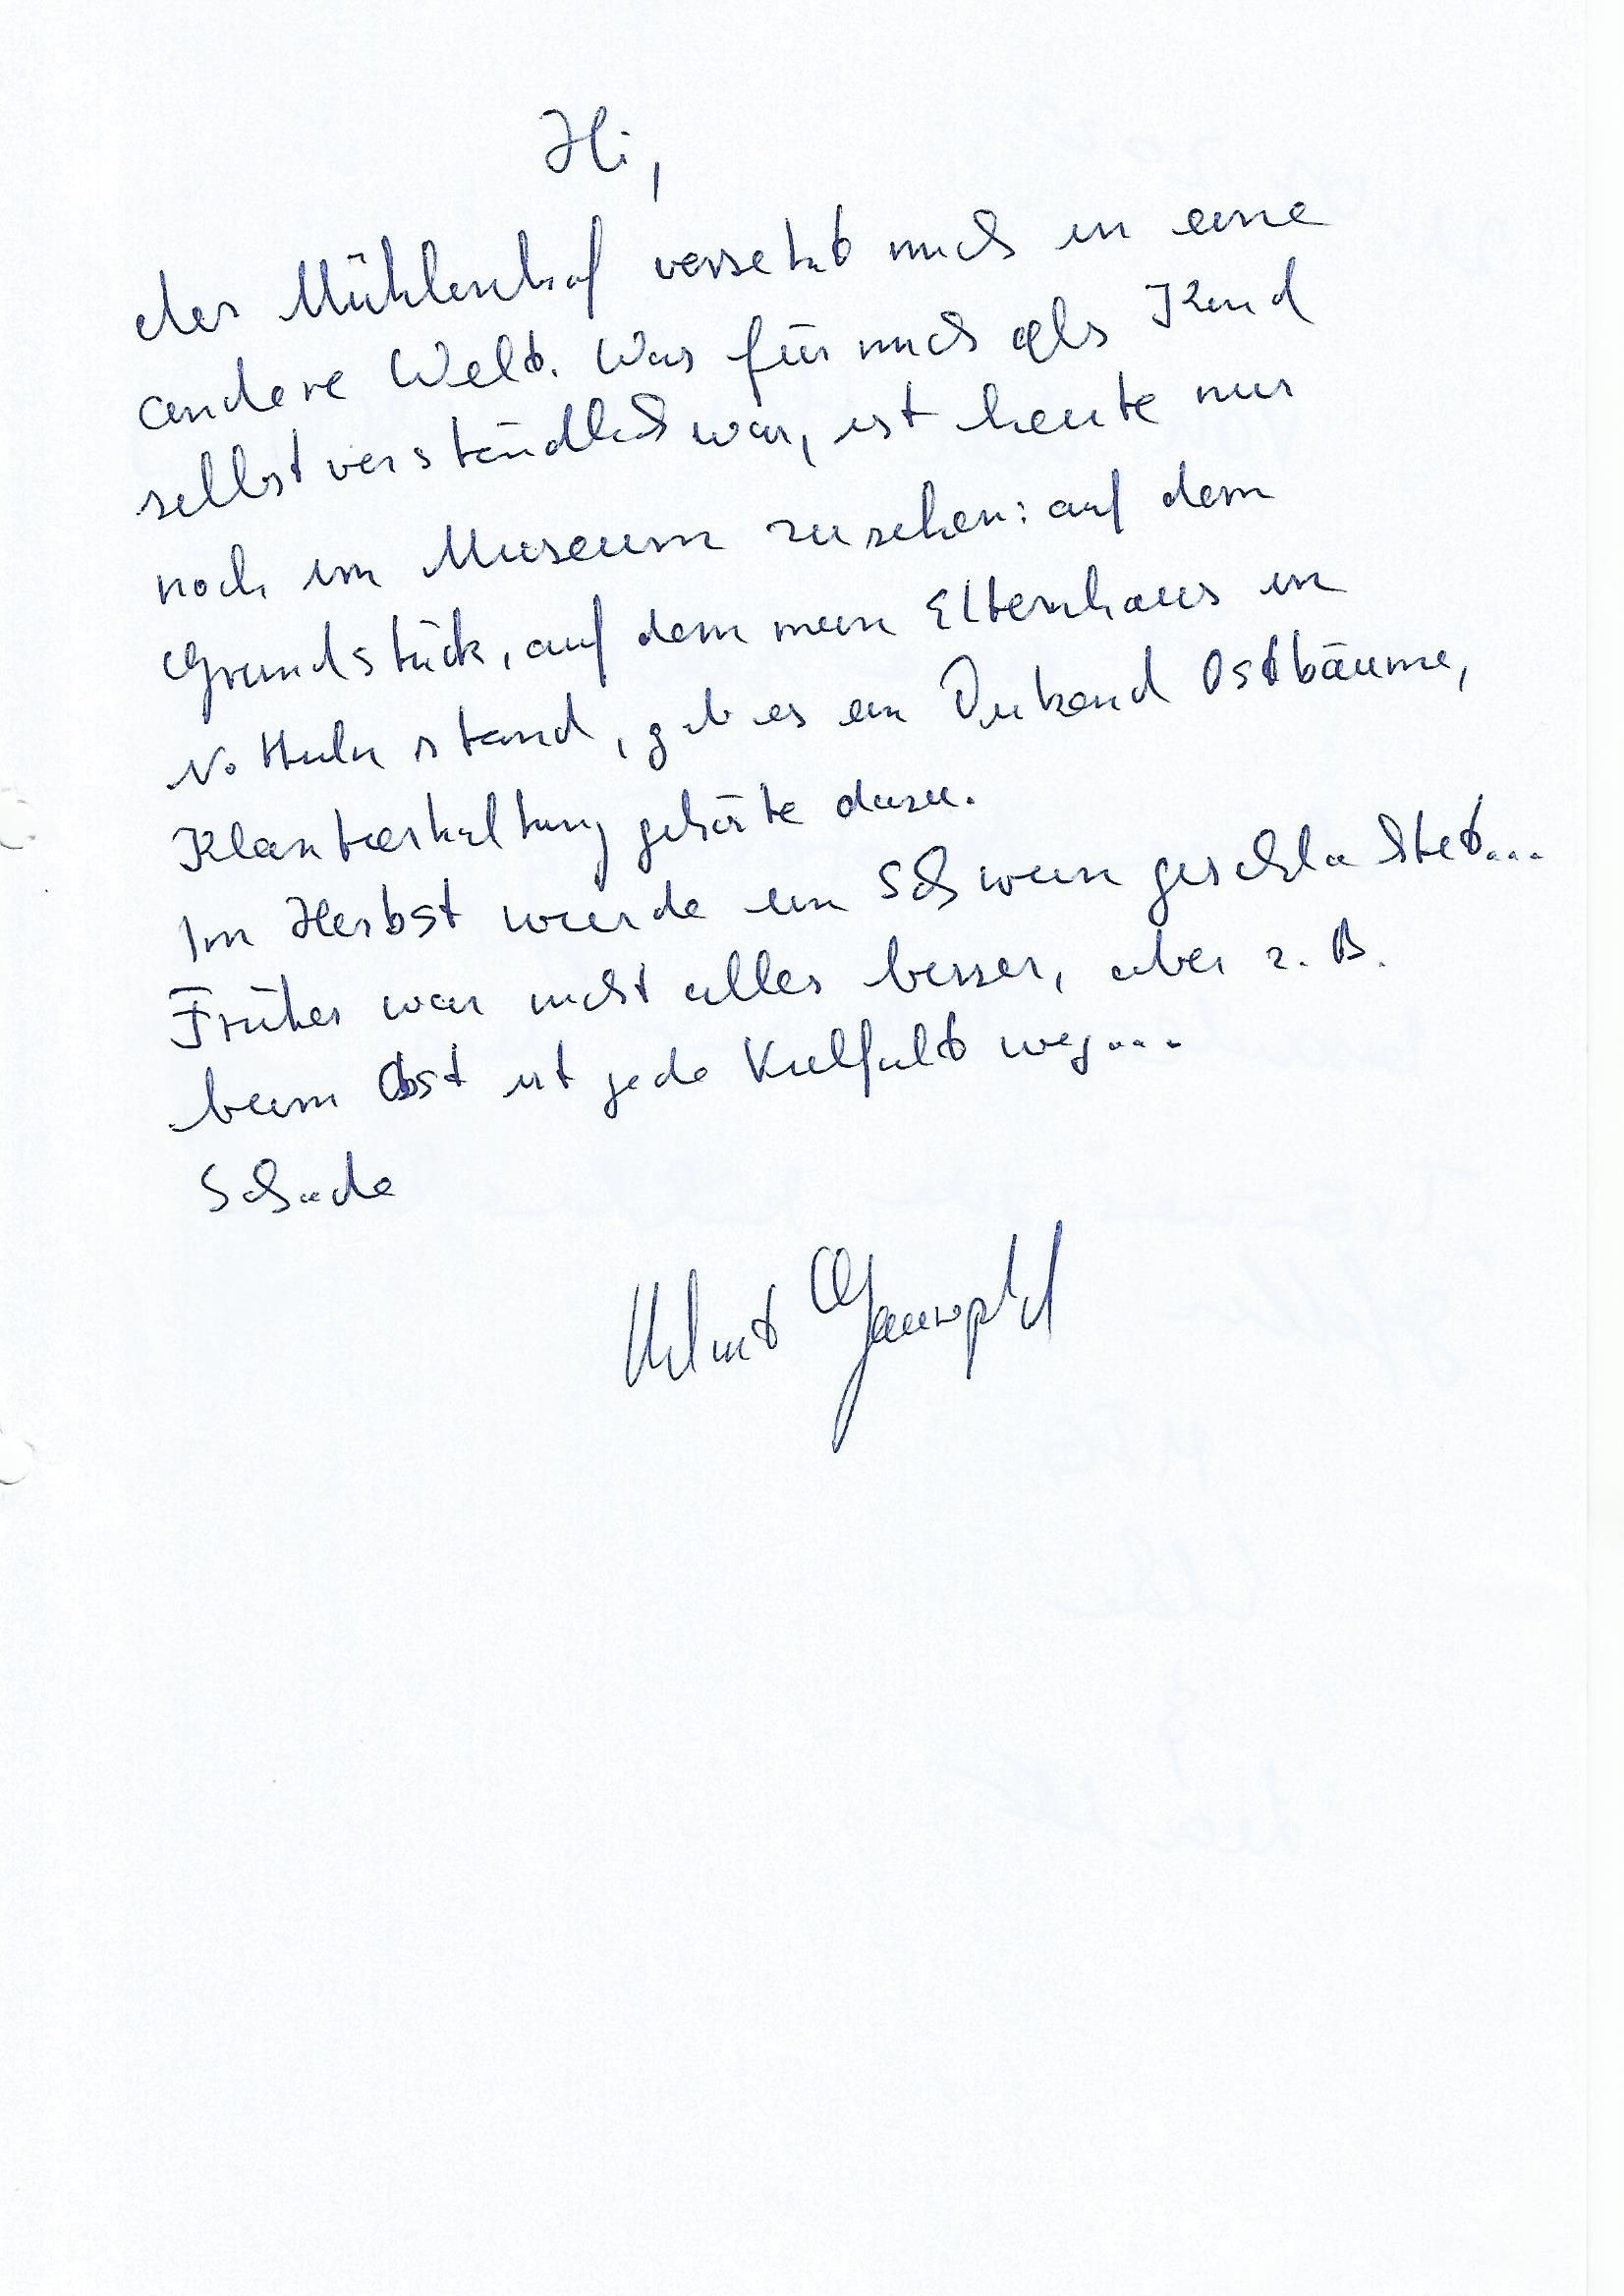 Hi,
der Mühlenhof versetzt mich in eine
andere Welt. Was für mich als Kind
selbstverständlich war, ist heute nur
noch im Museum zu sehen: auf dem
Grundstück, auf dem mein Elternhaus in
Nottuln stand, gab es ein Dutzend Ostbäume,
Kleintierhaltung gehörte dazu.
Im Herbst wurde ein Schwein geschlachtet...
Früher war nicht alles besser, aber z. B.
beim Obst ist jede Vielfalt weg...
Schade